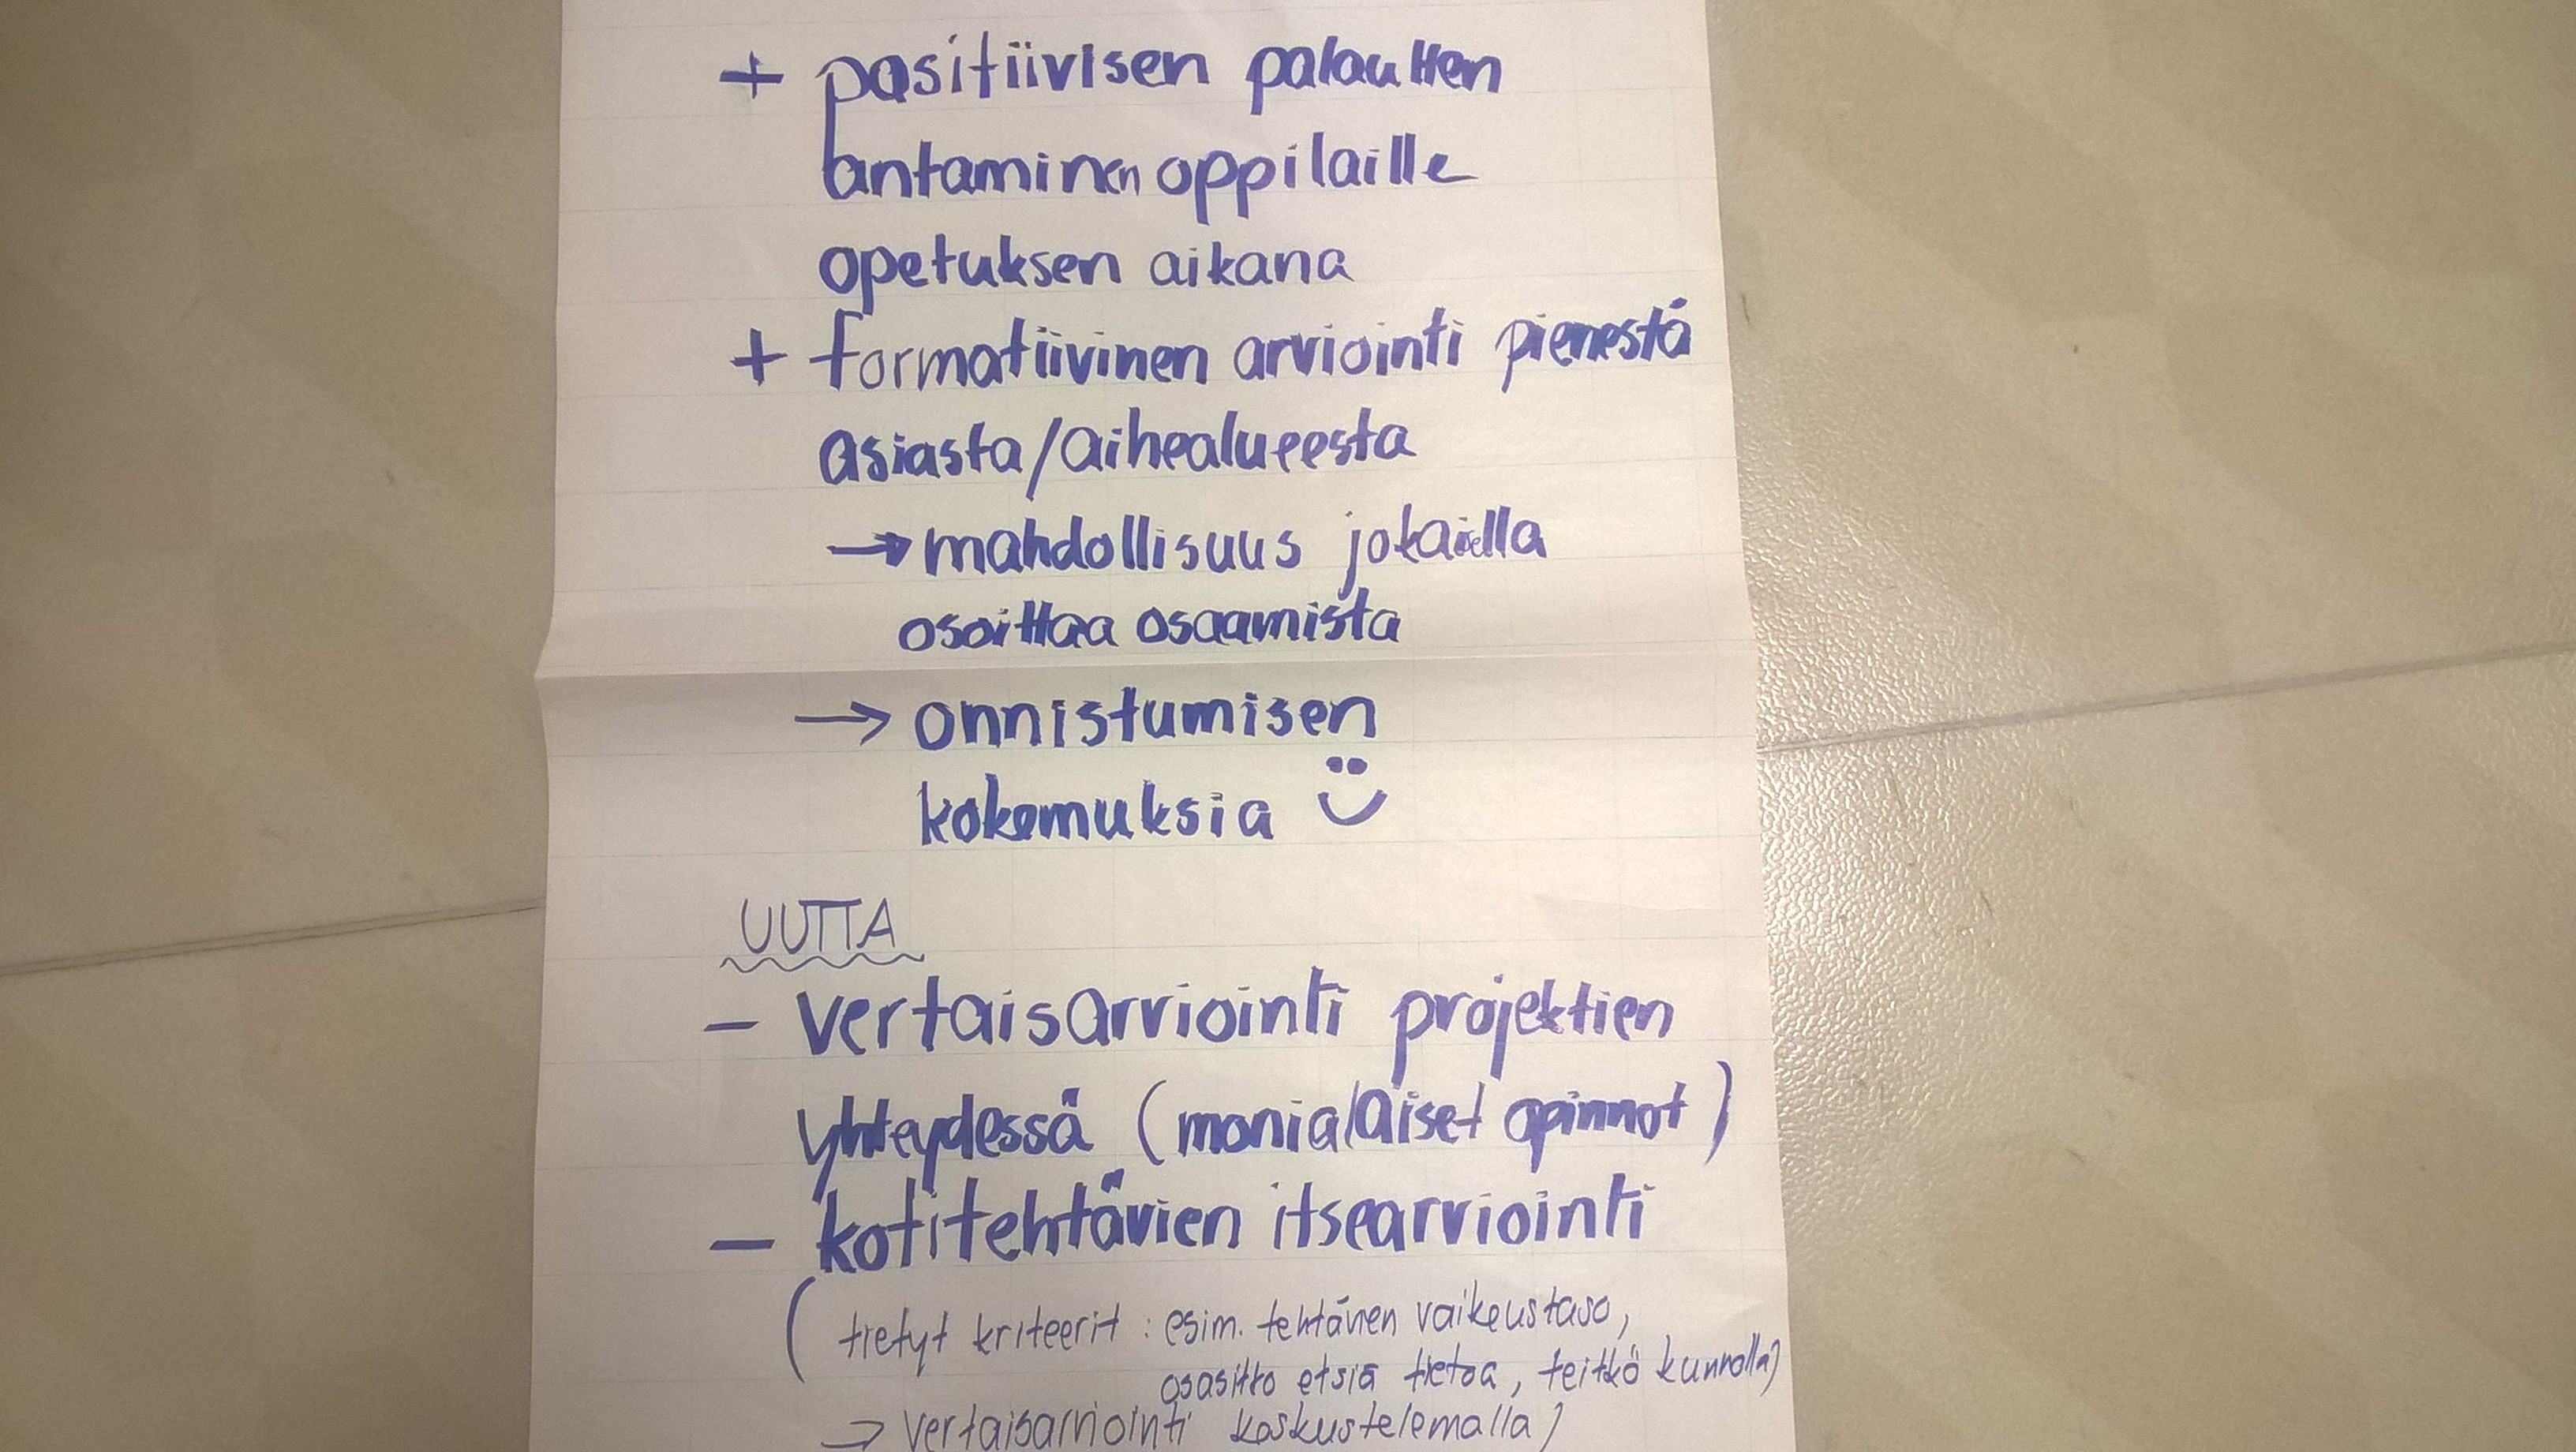 + positiivisen palautten
antaminen oppilaille
opetuksen aikana
+ formatiivinen arviointi pienestä
asiasta/aihealueesta
→ mahdollisuus jokaisella
osoittaa osaamista
→ onnistumisen
kokemuksia
UUTTA
- vertaisarviointi projektien
yhteydessä (monialaiset opinnot)
- kotitehtävien itsearviointi
(tietyt kriteerit: esim. tehtävien vaikeustaso,
osasitko etsiä tietoa, teitkö kunnolla)
→ vertaisarviointi keskustelemalla)